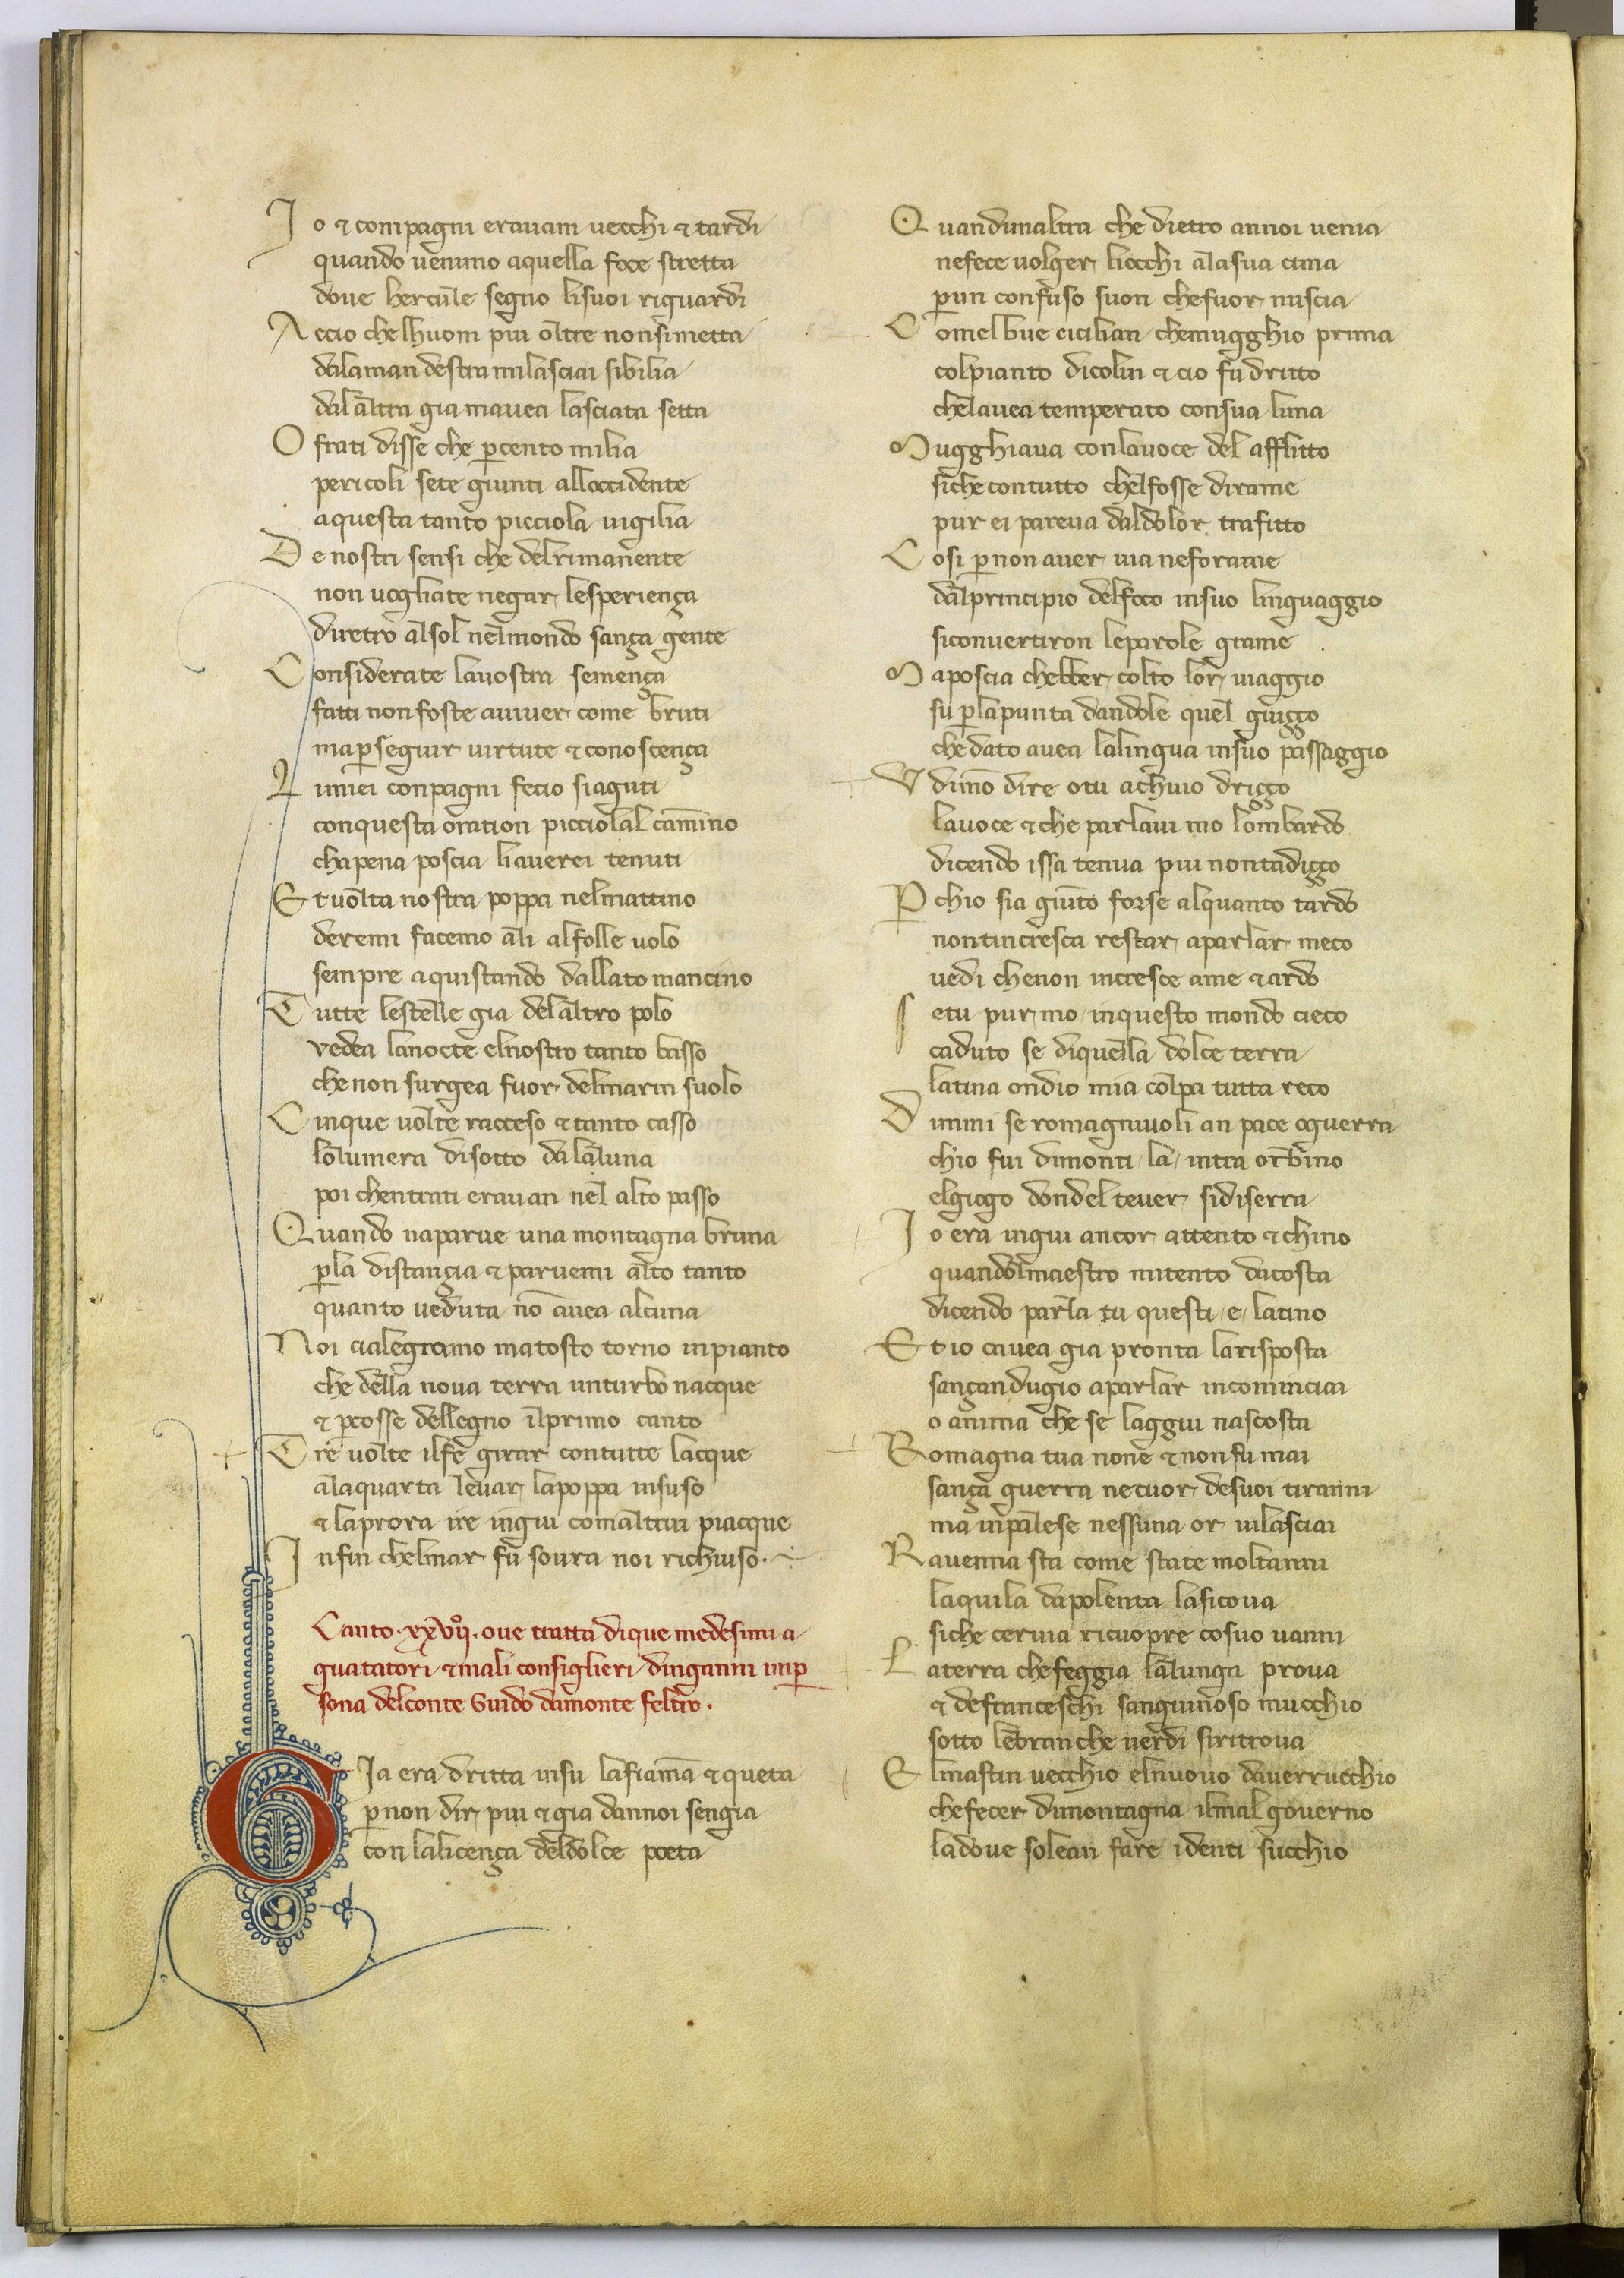 Io & compagni erauam uecchi & tardi
quando uenimo aquella foce stretta
doue hercule segno lisuoi riguardi
Accio chelhuom piu oltre nonsimetta
dalaman destra milasciai sibilia
dalaltra gia mauea lasciata setta
O frati disse che ꝑcento milia
pericoli sete giunti alloccidente
aquesta tanto picciola uigilia
De nostri sensi che delrimanente
non uogliate negar lesperiença
diretro alsol nelmondo sança gente
Considerate lauostra semença
fatti nonfoste auiuer come bruti
maꝑseguir uirtute & conoscença
Limiei conpagni fecio siaguti
conquesta oration picciolal camīno
chapena poscia liauerei tenuti
Et uolta nostra poppa nelmattino
deremi facemo ali alfolle uolo
sempre aquistando dallato mancino
Tutte lestelle gia delaltro polo
vedea lanocte elnostro tanto basso
chenon surgea fuor delmarin suolo
Cinque uolte racceso & tanto casso
lolumera disotto dalaluna
poi chentrati erauan nel alto passo
Quando naparue una montagna bruna
ꝑla distança & paruemi alto tanto
quanto ueduta nō auea alcuna
Noi cialegramo matosto torno inpianto
che della noua terra unturbo nacque
& ꝑcosse dellegno ilprimo canto
Tre uolte ilfe girar contutte lacque
alaquarta leuar lapoppa insuso
& laprora ire ingiu comaltrui piacque
Infin chelmar fu soura noi richiuso.
Canto .xxvij. oue tratta dique medesimi a
guatatori & mali consiglieri dinganni inꝑ
sona delconte Guido damonte feltro.
GIa era dritta insu lafiamā & queta
ꝑnon dir piu & gia dannoi sengia
con lalicença deldolce poeta
Quandunaltra che dietro annoi uenia
nefece uolger liocchi alasua cima
ꝑun confuso suon chefuor nuscia
Comelbue cicilian chemugghio prima
colpianto dicolui & cio fu dritto
chelauea temperato consua lima
Mugghiaua conlauoce del afflitto
siche contutto chelfosse dirame
pur ei pareua daldolor trafitto
Cosi ꝑnon auer uia neforame
dalprincipio delfoco insuo linguaggio
siconuertiron leparole grame
Maposcia chebber colto lor uiaggio
su ꝑlapunta dandole quel guiçço
che dato auea lalingua insuo passaggio
Vdimō dire otu achuio driçço
lauoce & che parlaui mo lombardo
dicendo issa tenua piu nontadiçço
Pchio sia giūto forse alquanto tardo
nontincresca restar aparlar meco
uedi chenon incresce ame & ardo
Setu pur mo inquesto mondo cieco
caduto se diquella dolce terra
latina ondio mia colpa tutta reco
Dimmi se romagniuoli an pace oguerra
chio fui dimonti la intra orbino
elgiogo dondel teuer sidiserra
Io era ingiu ancor attento & chino
quandolmaestro mitento dacosta
dicendo parla tu questi e latino
Et io cauea gia pronta larisposta
sançandugio aparlar incominciai
o anima che se laggiu nascosta
Romagna tua none & nonfu mai
sança guerra necuor desuoi tiranni
ma inpalese nessuna or uilasciai
Rauenna sta come state moltanni
laquila dapolenta lasicoua
siche ceruia ricuopre cosuo uanni
Laterra chefeggia lalunga proua
& defranceschi sanguinoso mucchio
sotto lebranche uerdi siritroua
Elmastin uecchio elnuouo dauerrucchio
chefecer dimontagna ilmal gouerno
ladoue solean fare identi succhio